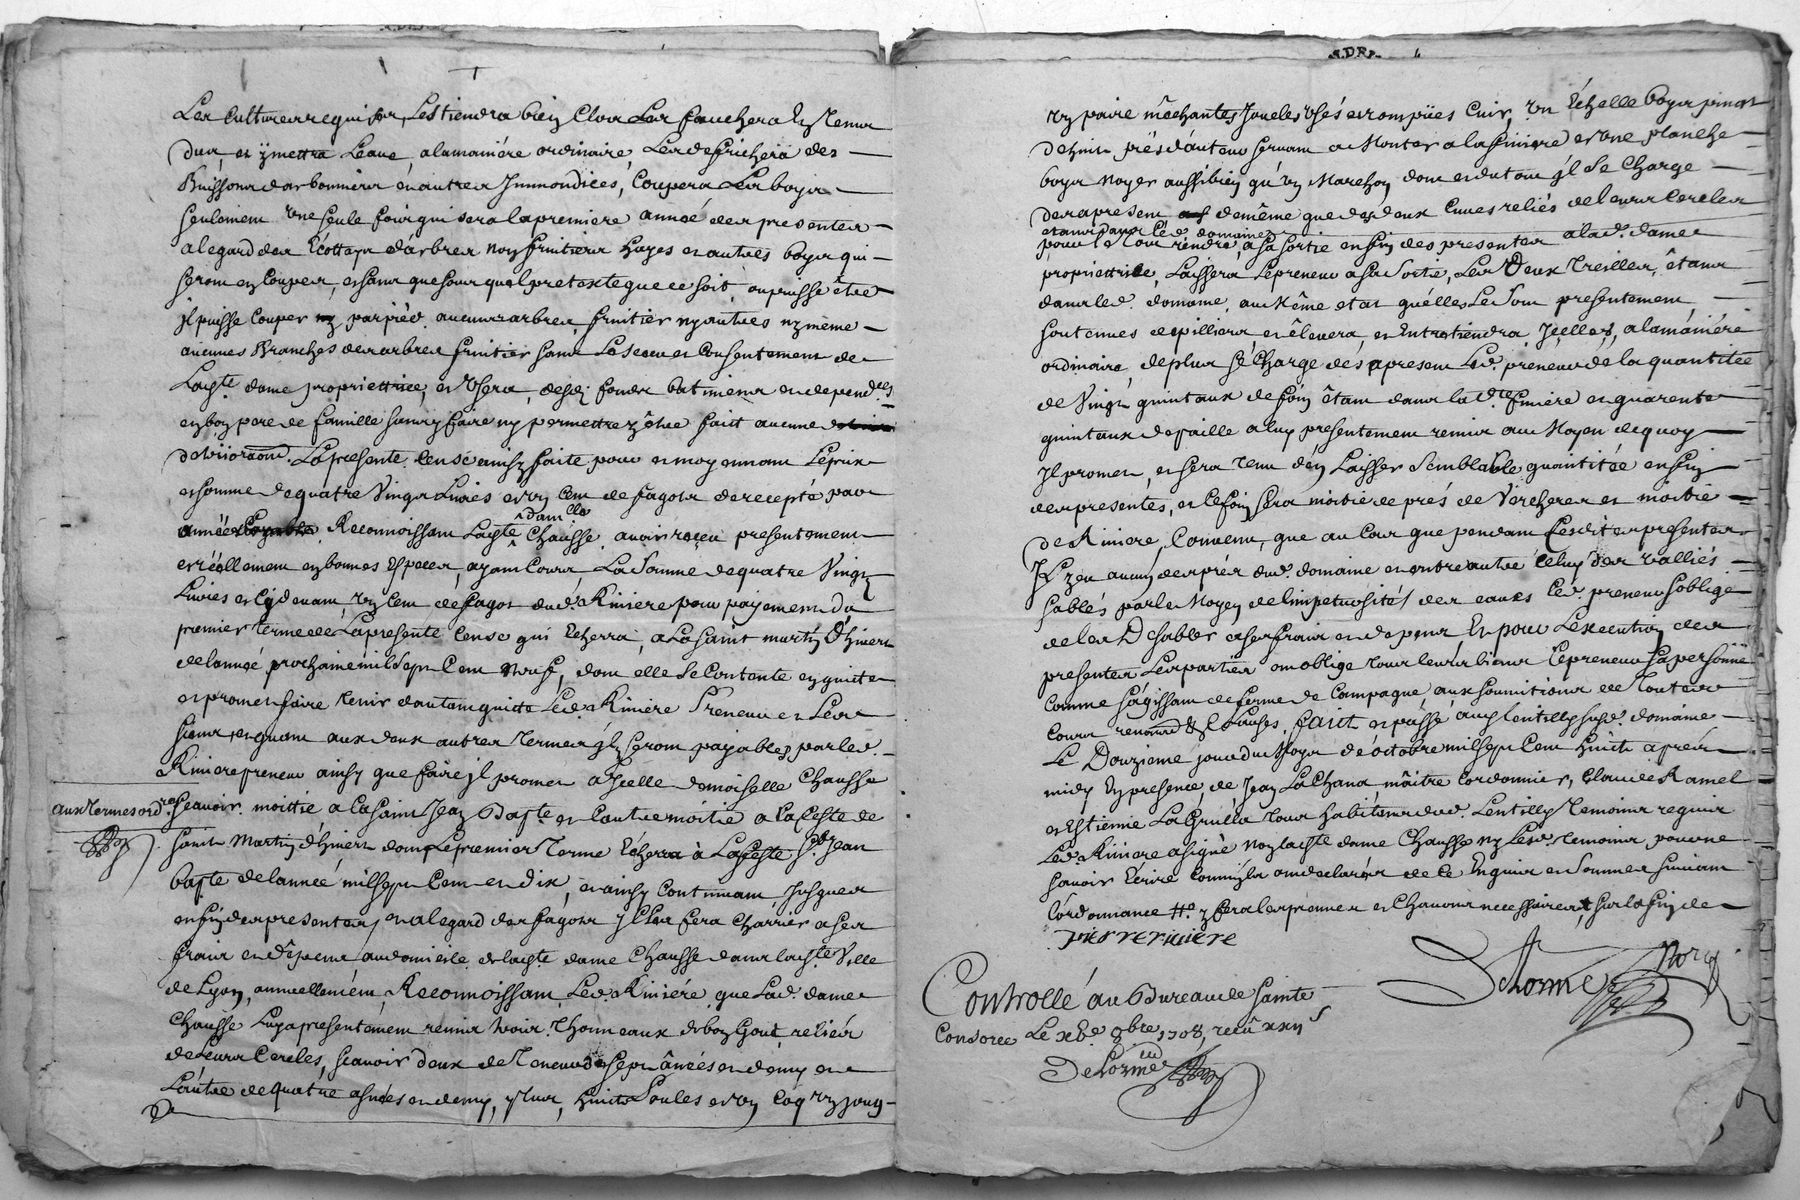 Les cultures requises, Les tiendra bien Clos Les fauchera En temps
dus, et ÿ mettra Leaue, alamaniére ordinaire, Les defrichera des
Buissons arbonniers et autres Immondices, Coupera Les boyes
seulement une seule fois qui sera la premiere année des presentes
alegard des Ecottays d'arbres non fruitiers hayes et autres boyes qui
seront en coupes, et sans que sous quel pretexte que ce soit, ou puisse être
jl puisse couper par pied aucuns arbres, fruitier ny autres ny mème
aucunes Branches des arbres fruitier sans Le sceu et Consentement de
Lad.te dame proprietrice, et Usera, desd. fonds batimens et depend.ces
en bon pere de famille sans y faire ny permettre être faitt aucune
deterioraõn. La presente Cense ainsy faite pour et moyennant Le prix
et somme de quatre Vingt Livres et un Cent de fagots de recepte par
année Reconnoissant Lad.te dam.lle Chausse avoir reçeu presentement
et réellement en bonnes Especes, ayant Cours, La Somme de quatre Vingt
Livres et cy devant, un Cent de fagot dud. Riniere pour payement du
premier terme de La presente Cense qui Echerra, a La saint martin D'hivert
de lannée prochaine mil Sept Cent Neuf, dont elle Se Contente en quitte
et promet faire tenir d'autant quitte Led. Riniere Preneur et Les
siens, et quant aux deux autres termes jls seront payables par led.
Riniere preneur ainsy que faire jl promet a Jcelle demoiselle Chausse
aux termes ord.res
scavoir moittié a La saint Jean Bap.te et l'autre moitié a La feste de
saint Martin d'hivert dont Le premier Terme Echerra à La feste S.t Jean
bap.te de lannée mil sept Cent et dix, et ainsy Continuant Jusques
en fin des presentes, et alegard des fagots jl Les fera Charrier a ses
frais et dêpens au domicile de lad.te dame Chausse dans lad.te Ville
de Lyon, annuellemént, Reconnoissant Led. Riniére que Lad. dame
Chausse Luy a presentemént remis trois Thonneaux de bon Gout, reliés
de Leurs Cercles, scavoir deux de teneur de sept ânées et demy et
L'autre de quatre asnées et demy, plus, huitt Poules et un Coq un joug
un paire méchantes Joucles usés et rompües Cuir, un Échelle boys pinat
de huit piéds d'auteur servant a Monter a la finiere et une planche
boys Noyer aussi bien qu'un Marchon dont et du tout jl Se Charge
des apresent de même que des deux Cuves reliés de leurs Cercles
etant dans led. domaine
pour Le tout rendre, a Sa Sortie en fin des presentes alad. dame
propriettrice, Laissera Le preneur a sa Sortie, Les Deux Treilles, êtant
dans led. domaine, au Mème etat qu'elles Le Sont presentement
soutenues de pilliers et êlevera, et Entretiendra Jcelles, alamániére
ordinaire, de plus se Charge dés apresent Led. preneur de la quantitée
de Vingt quintaux de foin êtant dans lad.te finiere et quarente
quintaux de paille a luy presentement remis au Moyen de quoy
Jl promet, et sera tenu d'en Laisser Semblable quantitée en fin
des presentes, et Le foin sera moitié de prés de Vercheres et moitié
de Riniere, Convenu, que au Cas que pendant Lesdittes presentes
Jl y eu aucun des prés dud. domaine et entre autre Celuy des Valliés
sablés par le Moyen de limpetuosité des eaux Led. preneur s'oblige
de les Desabler a ses frais et depens, Et pour L'execution des
presentes Les parties ont oblige tous leurs biens Le preneur Sa personne
Comme s'agissant de ferme de Campagne aux soumitions de Toutes
Cours renond & Clauses. faitt et passé au lentilly sus d. domaine
Le Douzieme jour du Moys de octobre mil sept Cent huit apres
midy En presence, de Jean La Chana maître Cordonnier, Claude Ramel
et Estienne La Grulla tous habitans dud. Lentilly Temoins requis
Led. Riniere a signé non lad.te dame Chausse ny Lesd. temoins pour ne
scavoir Ecrire comme jls ont declarés de Ce Enquis et Sommés suivant
l'ordonnance
pierre riniere
Delorme Nore
Controllé au Bureau de Sainte
Consorce Le xv.e 8bre 1708, receu xxii s
Delorme